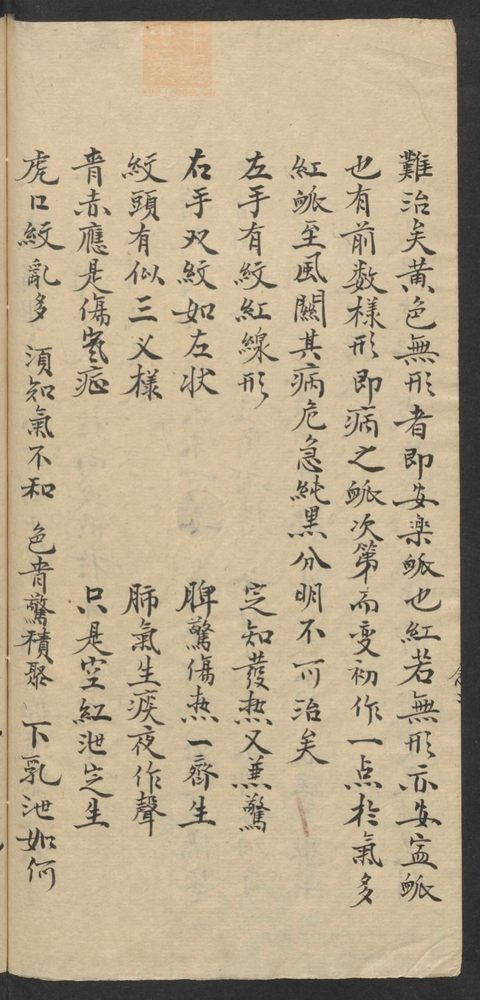 難治矣黄色無形者即安楽脈也紅若無形亦安寍脈
也有前数様形即病之脈次第而变初作一点於氣多
紅脈至風關其病危急純黒分明不可治矣
左手有紋紅線形 定知發热又兼驚
右手双紋如左状 脾驚傷热一齊生
紋頭有似三叉樣 肺氣生痰夜作聲
青赤應是傷寒症 只是空紅泄定生
虎口紋亂多 須知氣不和 色青驚積聚 下乳泄如何